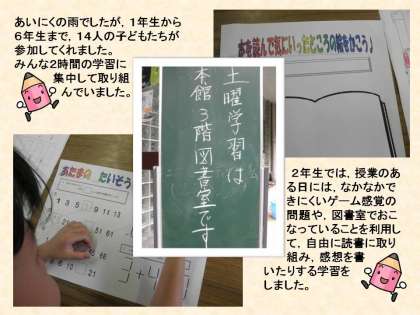 あいにくの雨でしたが，１年生から
６年生まで，１４人の子どもたちが
参加してくれました。
みんな２時間の学習に
集中して取り組
んでいました。
本を読んで気にいったところの絵をかこう♪
土曜学習は
本館３階図書室です
あたまの　たいそう
1 3 5 9 11 13
２年生では，授業のあ
る日には，なかなかで
きにくいゲーム感覚の
問題や，図書室でおこ
なっていることを利用し
て，自由に読書に取り
組み，感想を書
いたりする学習を
しました。